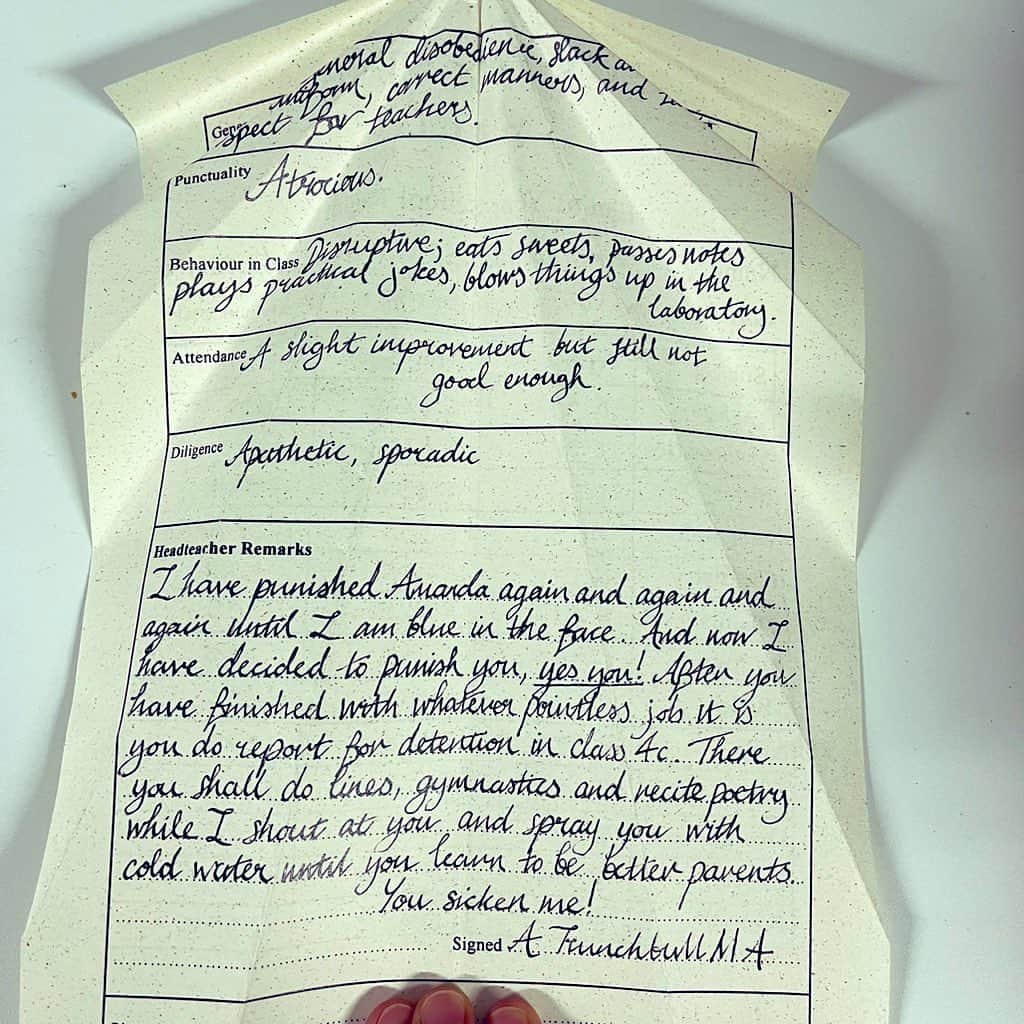 general disobedience, slack
uniform, correct manners, and
spect for teachers.
Punctuality Atrocious.
Behaviour in Class Disruptive; eats sweets, passes notes
plays practical jokes, blows things up in the
laboratory.
Attendance A slight improvement but still not
good enough.
Diligence Apathetic, sporadic
Headteacher Remarks
I have punished Amanda again and again and
again until I am blue in the face. And now I
have decided to punish you, yes you! After you
have finished with whatever pointless job it is
you do report for detention in class 4c. There
you shall do lines, gymnastics and recite poetry
while I shout at you and spray you with
cold water until you learn to be better parents.
You sicken me!
Signed A Trunchbull MA